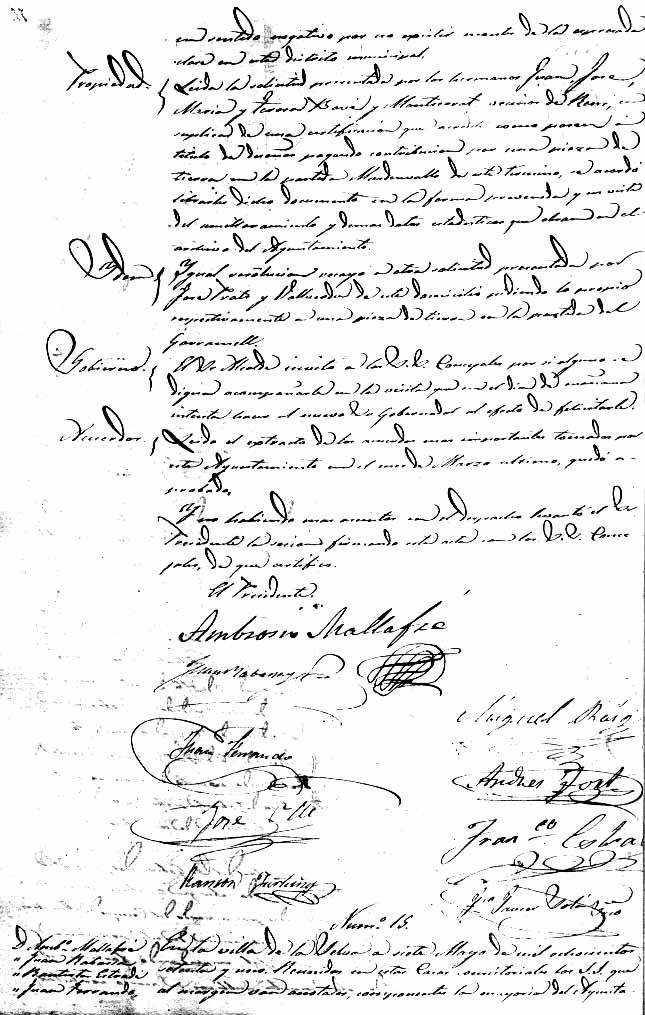 en sentido negativo por no existir monte de la expresada
clase en este distrito municipal.
Propiedad. Leida la solicitud presentada por los hermanos Juan, José,
Maria y Teresa y Montserrat vecinos de Reus, en
suplica de una certificacion que acredite como poseen a
titulo de dueños pagando contribucion por una pieza de
tierra en la partida de este termino, se acordó
librarles dicho documento en la forma prevenida y en vista
del amillaramiento y demas datos estadisticos que obran en el
archivo del Ayuntamiento.
Ydem Ygual resolucion recayó a otra solicitud presentada por
José y de este domicilio pidiendo lo propio
respectivamente a una pieza de tierra en la partida del
Gobierno. El Sr. Alcalde invitó a los S.S. Concejales por si alguno se
digna acompañarle en la visita que en el dia de mañana
intenta hacer al nuevo Sr. Gobernador al efecto de felicitarle.
Acuerdos Leido el extracto de los acuerdos mas importantes tomados por
este Ayuntamiento en el mes de Marzo ultimo, quedó a-
probado.
Y no habiendo mas asuntos en el despacho levantó el Sr.
Presidente la sesion firmando esta acta con los S.S. Conce-
jales, de que certifico.
El Presidente.
Ambrosio Mallafré
Juan
Miguel Roig
Juan Ferrando
Andres
José
Fran.co
Ramon
Num.o 15.
D. Amb.o Mallafré
" Juan
" Bautista
" Juan Ferrando,
En la villa de la Selva a siete Mayo de mil ochocientos
setenta y uno. Reunidos en estas Casas consistoriales los S.S. que
al margen van anotados, componentes la mayoria del Ayunta-